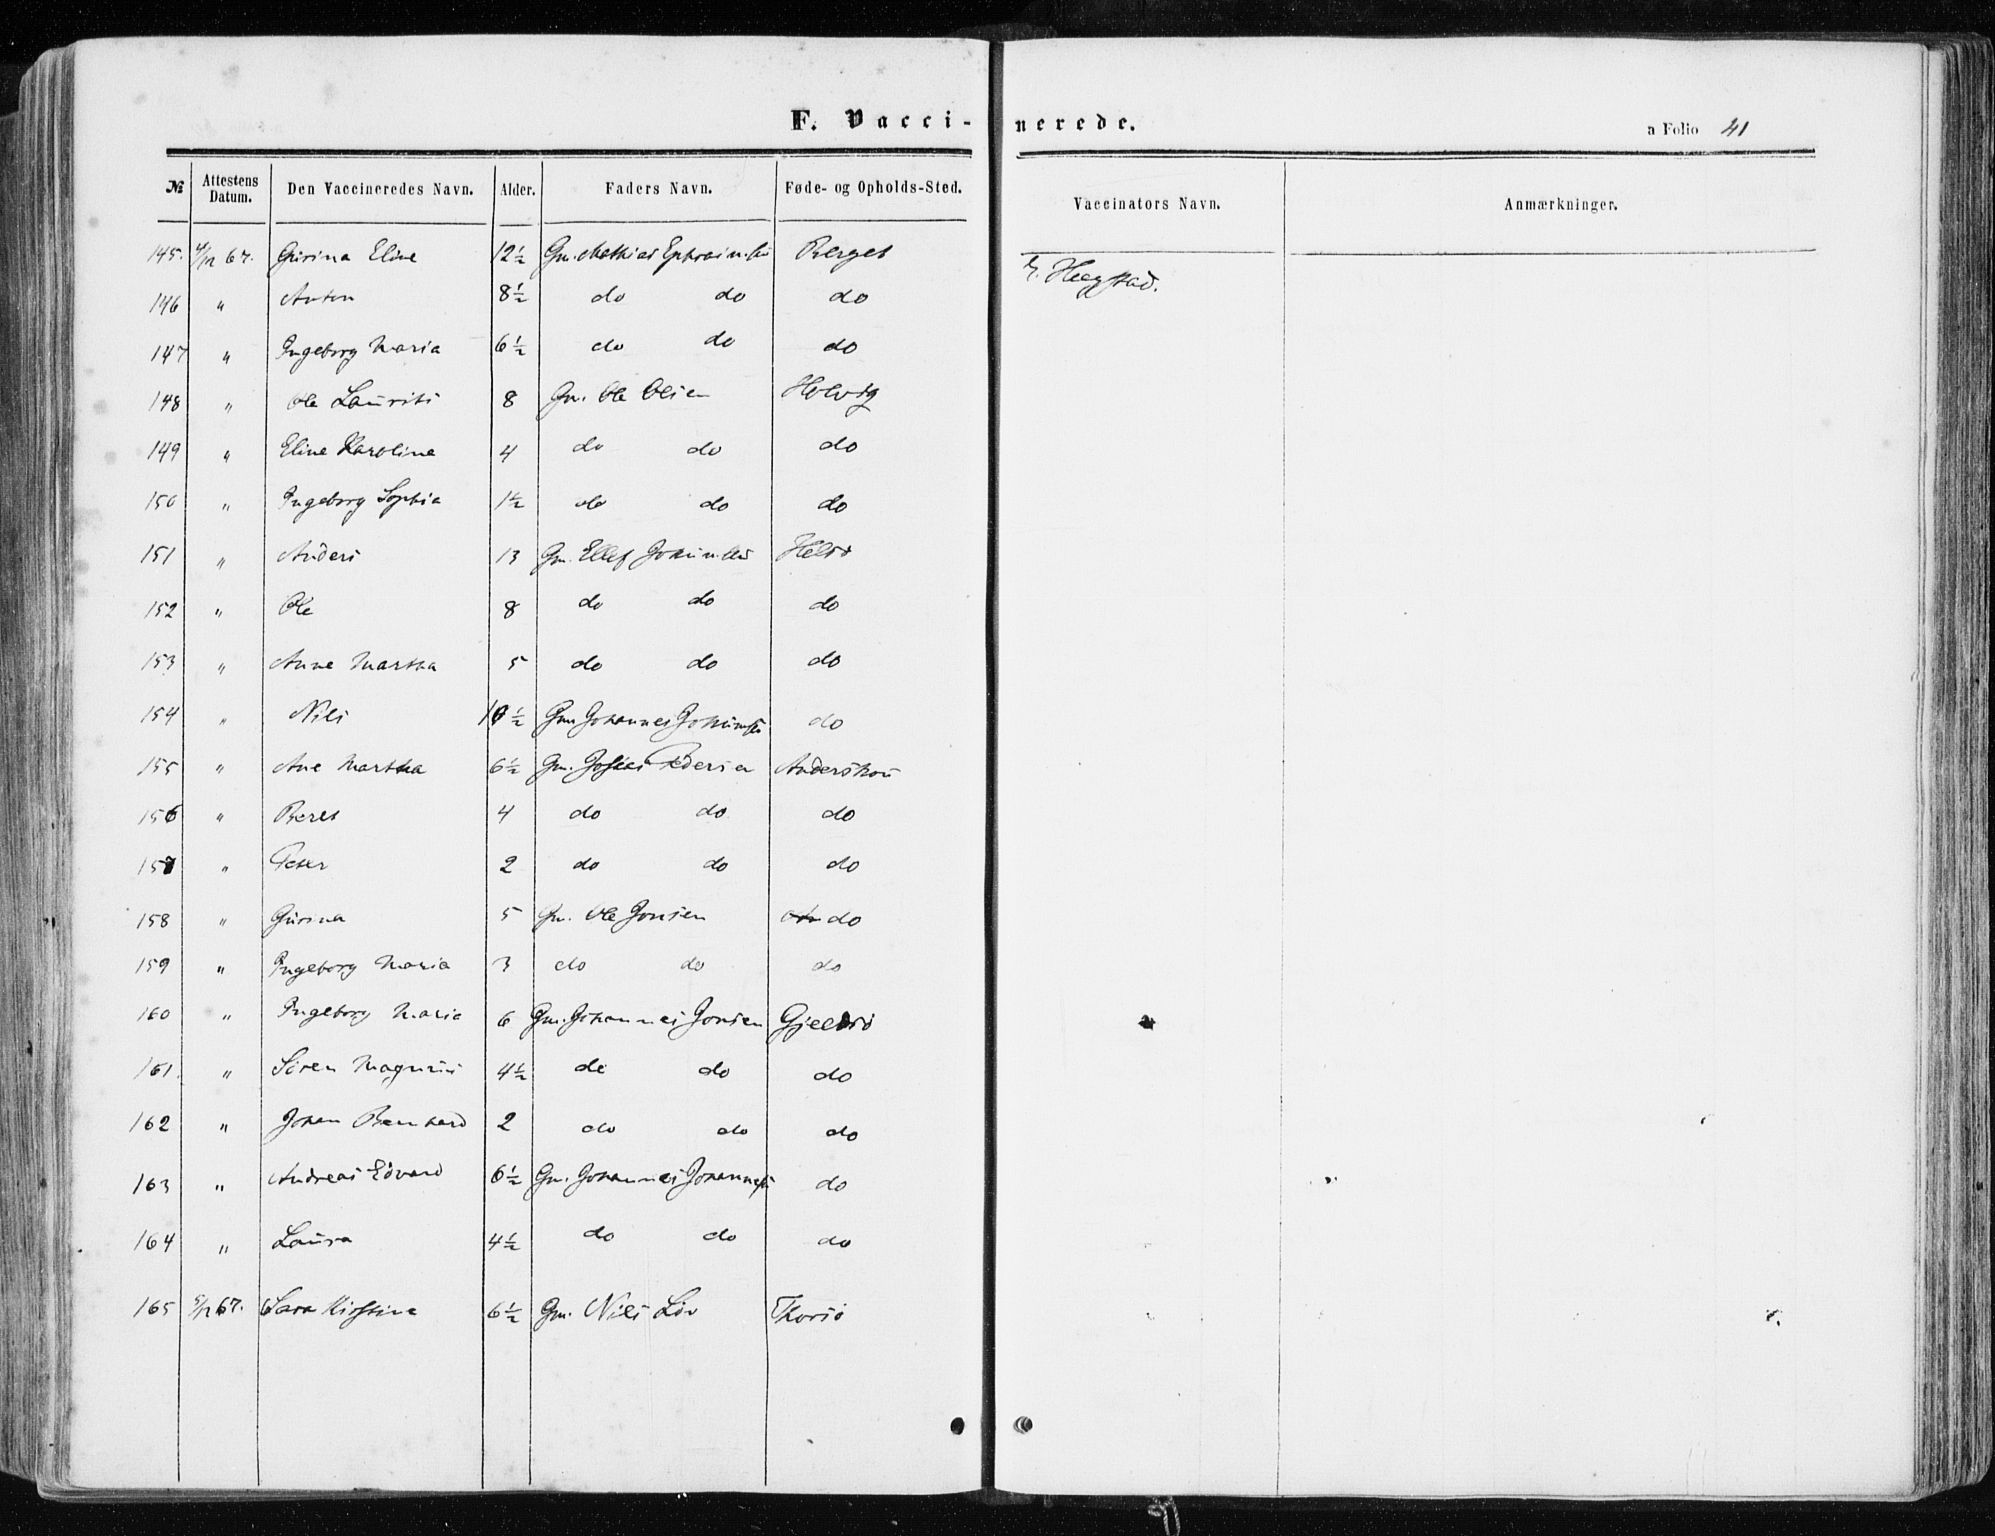 F. Vacci-
nerede.
a Folio 41
№ Attestens Datum. Den Vaccineredes Navn. Alder. Faders Navn. Føde- og Opholds-Sted. Vaccinators Navn. Anmærkninger.
145. 4/12 67. Gurina Eline 12½ Gm. Mathias Ephraims. Berget
146 " Anton 8½ do do do
147 " Ingeborg Maria 6½ do do do
148 " Ole Laurits 8 Gm. Ole Olsen Holvig
149 " Eline Karoline 4 do do do
150 " Ingeborg Sophia 1½ do do do
151 " Anders 13 Gm. Ellef
152 " Ole 8 do do do
153 " Anne Martha 5 do do do
154 " Nils 10½ Gm. Johannes do
155 " Ane Martha 6½ Gm. Pedersen
156 " Beret 4 do do do
157 " Peter 2 do do do
158 " Gurina 5 Gm. Ole Jonsen do
159 " Ingeborg Maria 3 do do do
160 " Ingeborg Maria 6 Gm. Johannes Jonsen
161. " Sören Magnus 4½ do do do
162 " Johan Bernhard 2 do do do
163 " Andreas Edvard 6½ Gm. Johannes do
164 " Laura 4½ do do do
165 5/12 67. Sara Kirstina 6½ Gm. Nils